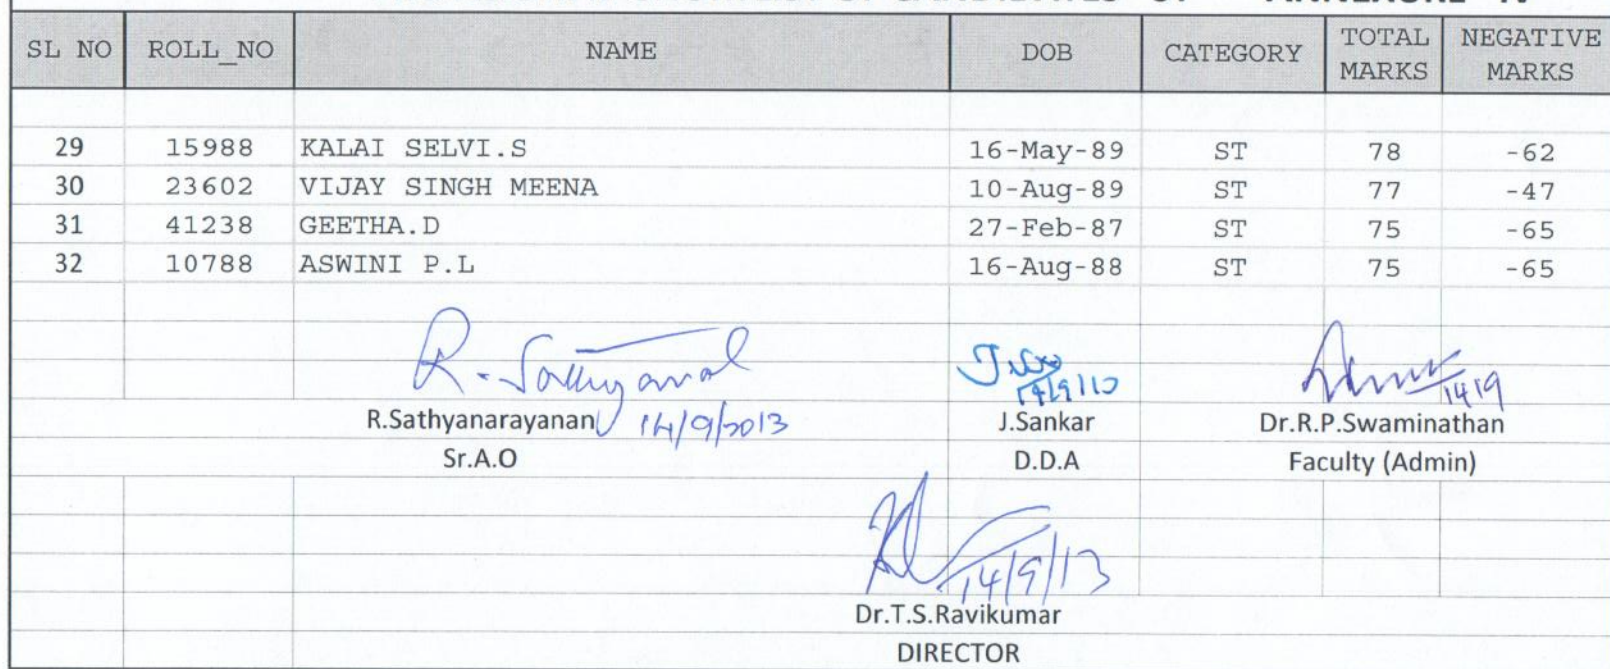 SL NO ROLL_NO NAME DOB CATEGORY TOTAL MARKS NEGATIVE MARKS
29 15988 KALAI SELVI.S 16-May-89 ST 78 -62
30 23602 VIJAY SINGH MEENA 10-Aug-89 ST 77 -47
31 41238 GEETHA.D 27-Feb-87 ST 75 -65
32 10788 ASWINI P.L 16-Aug-88 ST 75 -65
14/9/13 14/9
R.Sathyanarayanan 14/9/2013 J.Sankar Dr.R.P.Swaminathan
Sr.A.O D.D.A Faculty (Admin)
14/9/13
Dr.T.S.Ravikumar
DIRECTOR